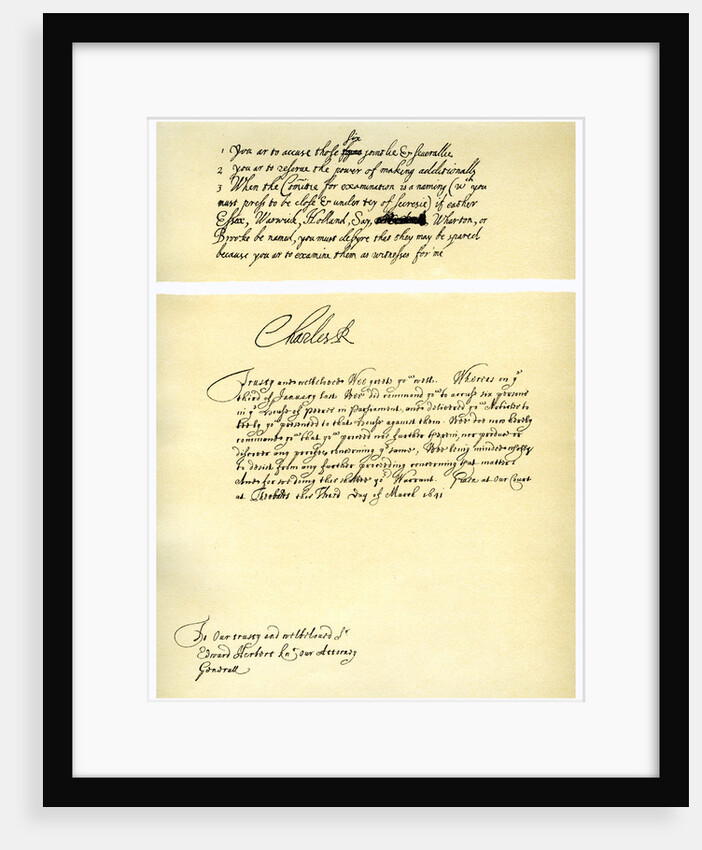 six
1 You ar to accuse those joyntlie & severallie
2 you ar to reserve the power of making additionally
3 When the Comitie for examination is a naming (wch you
must press to be close & under tey of secresie) if eather
Essex, Warwick, Holland, Say, Wharton, or
Brooke be named, you must desyre that they may be spared
because you ar to examine them as witnesses for me
Charles R
Trusty and welbeloved Wee greete you well. Whereas on ye
third of January last Wee did command you to accuse six persons
in ye House of Peeres in Parliament, and delivered you Articles to
bee by you presented to that House against them. Wee doe now hereby
command you that you proceed not further therein, nor produce or
discover any proofes concerning ye same, Wee being minded
to desist from any further proceeding concerning that matter
And for soe doing this shalbee yor Warrant. Given at our Court
at Theobalds this Third Day of March 1641
To Our trusty and welbeloved Sr
Edward Herbert Knt our Attorney
Generall